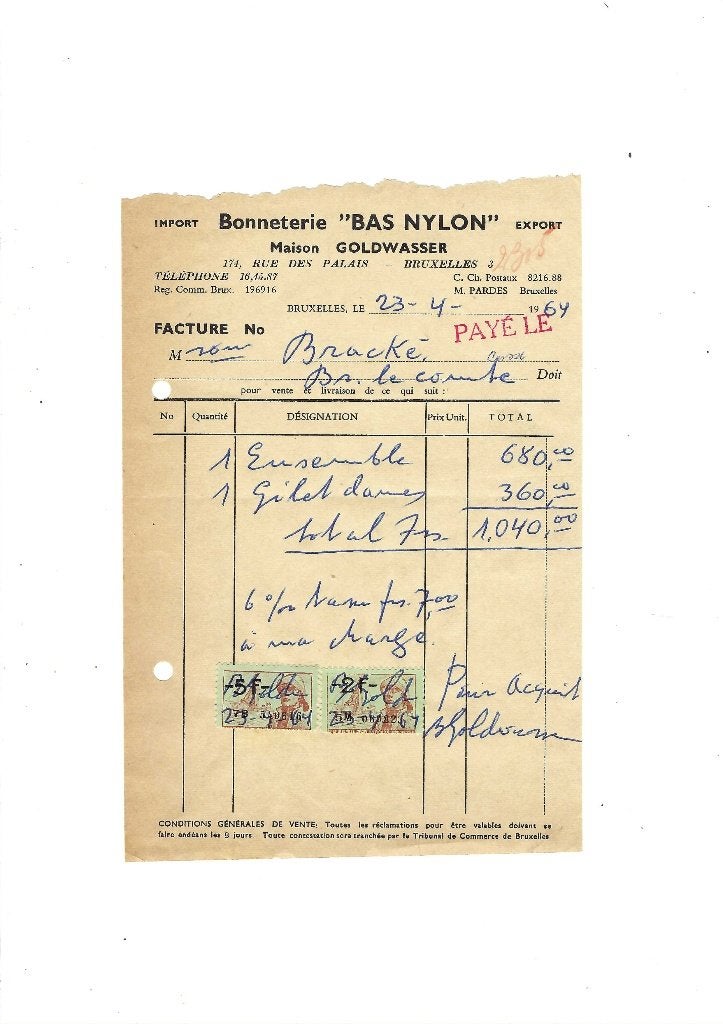 IMPORT Bonneterie "BAS NYLON" EXPORT
Maison GOLDWASSER
174, RUE DES PALAIS - BRUXELLES 3
TÉLÉPHONE 16.14.87 C. Ch. Postaux 8216.88
Reg. Comm. Brux. 196916 M. PARDES Bruxelles
BRUXELLES, LE 23-4- 1964
FACTURE No PAYÉ LE
M Bracké.
Br. le comte Doit
pour vente et livraison de ce qui suit :
No Quantité DÉSIGNATION Prix Unit. TOTAL
1 Ensemble 680,00
1 Gilet dames 360,00
total frs. 1,040,00
6 % taxe frs. 7,00
à ma charge.
-5F- -2F-
Pour Acquit
23-4-64 23-4-64
BGoldwasser
CONDITIONS GÉNÉRALES DE VENTE: Toutes les réclamations pour être valables doivent se
faire endéans les 8 jours Toute contestation sera tranchée par le Tribunal de Commerce de Bruxelles